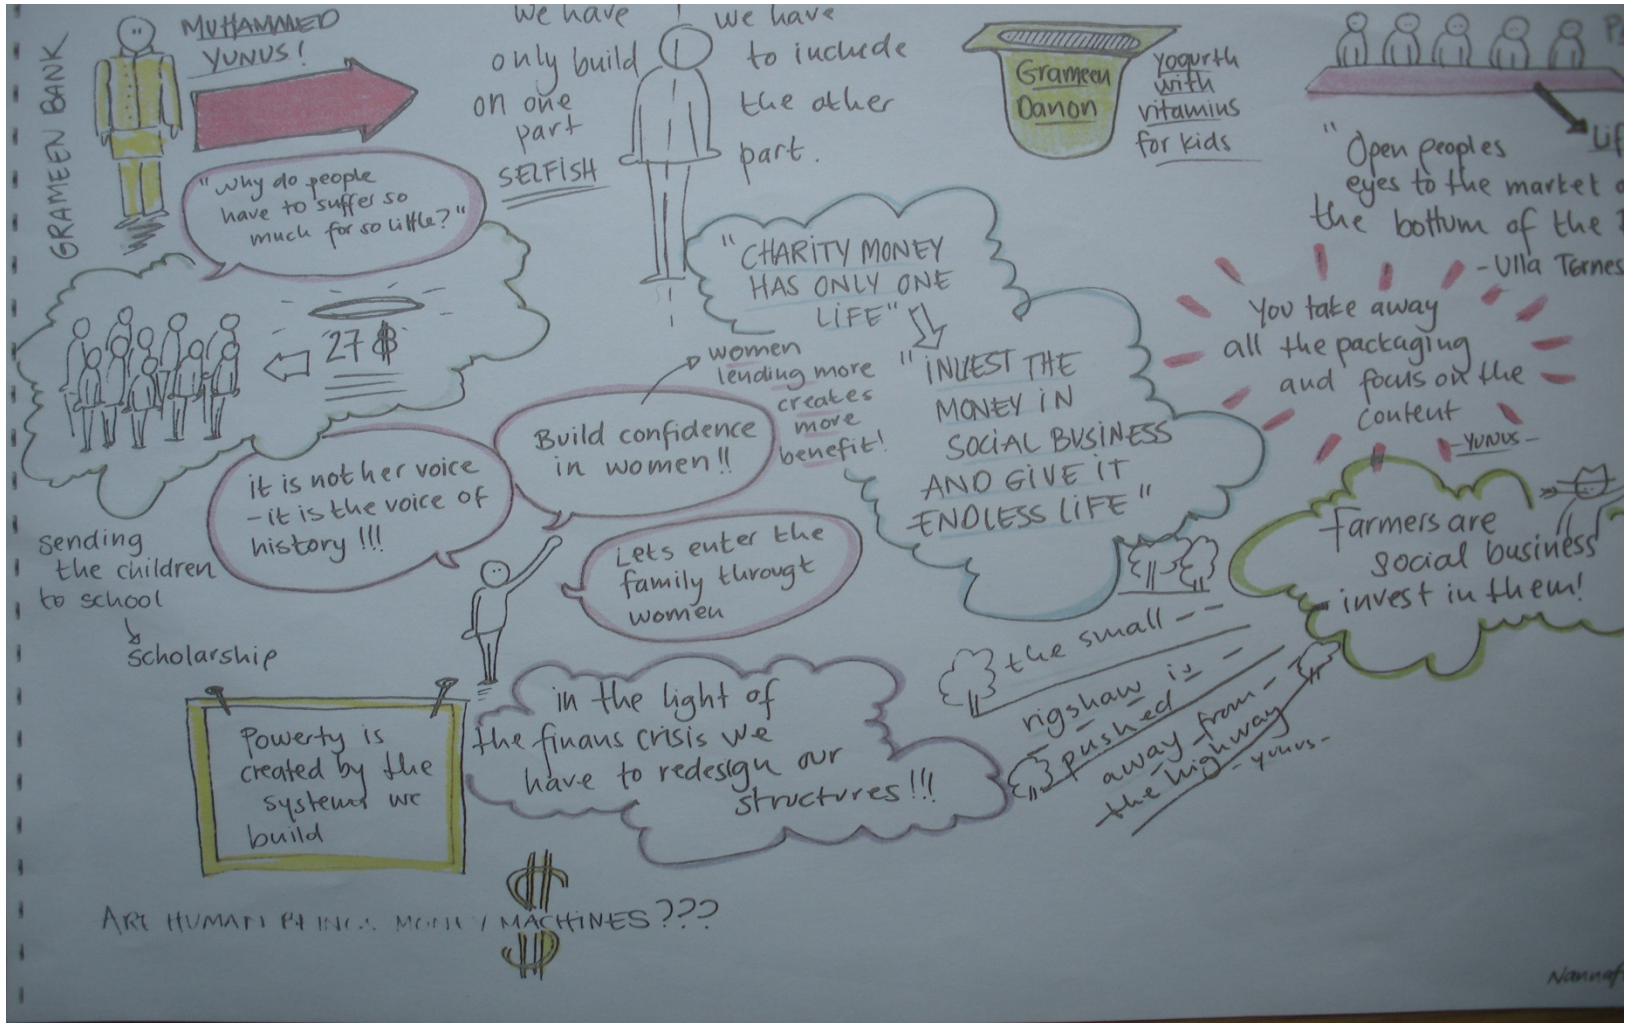 GRAMEEN BANK
MUHAMMED
YUNUS!
"Why do people
have to suffer so
much for so little?"
27 $
we have
only build
on one
part
SELFISH
we have
to include
the other
part.
Grameen
Danon
Yogurth
with
vitamins
for kids
"Open peoples
eyes to the market
the bottum of the
- Ulla Tørnes
"CHARITY MONEY
HAS ONLY ONE
LIFE"
"INVEST THE
MONEY IN
SOCIAL BUSINESS
AND GIVE IT
ENDLESS LIFE"
You take away
all the packaging
and focus on the
content
- YUNUS -
women
lending more
creates
more
benefit!
Build confidence
in women!!
it is not her voice
- it is the voice of
history!!!
Lets enter the
family througt
women
sending
the children
to school
scholarship
farmers are
social business
invest in them!
the small - -
rigshaw is -
pushed
away from -
the highway
- yunus -
Powerty is
created by the
systems we
build
in the light of
the finans crisis we
have to redesign our
structures!!!
ARE HUMAN BEINGS MONEY MACHINES???
$
$